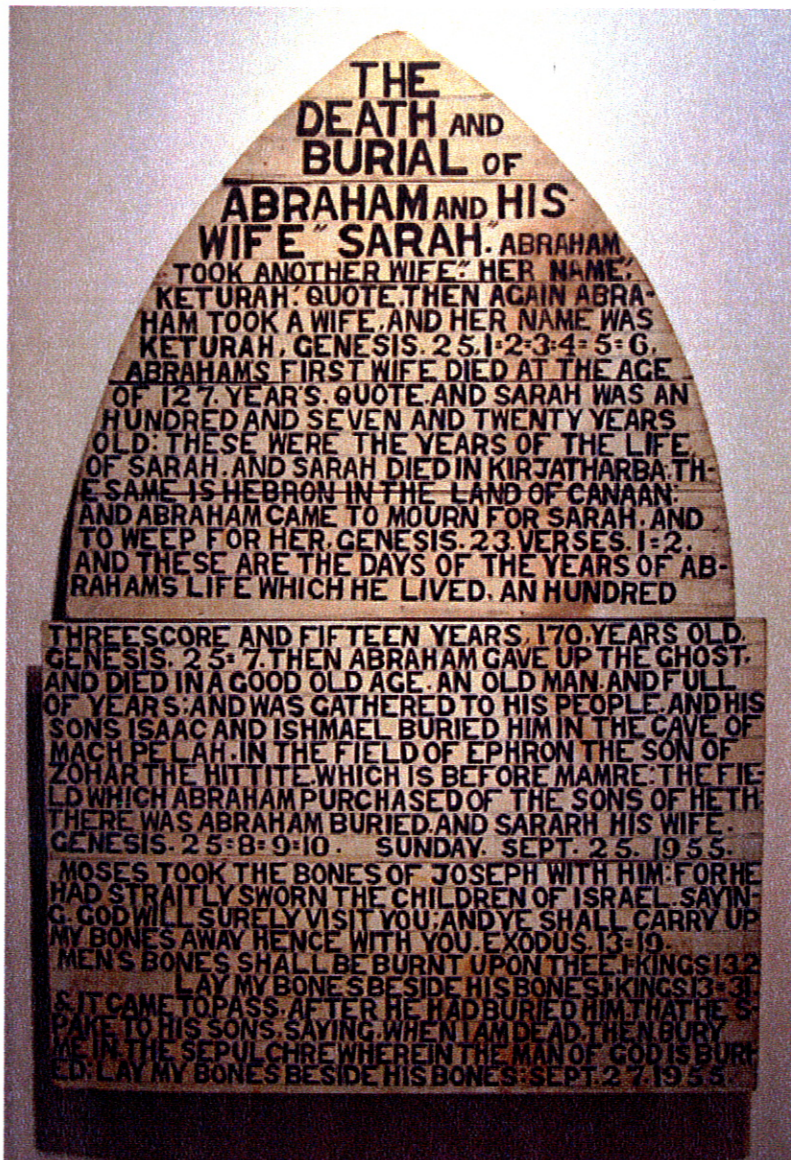 THE
DEATH AND
BURIAL OF
ABRAHAM AND HIS
WIFE" SARAH." ABRAHAM
TOOK ANOTHER WIFE." HER NAME",
KETURAH." QUOTE, THEN AGAIN ABRA-
HAM TOOK A WIFE, AND HER NAME WAS
KETURAH, GENESIS. 25.1=2=3=4=5=6.
ABRAHAMS FIRST WIFE DIED AT THE AGE
OF 127. YEAR'S. QUOTE. AND SARAH WAS AN
HUNDRED AND SEVEN AND TWENTY YEARS
OLD: THESE WERE THE YEARS OF THE LIFE
OF SARAH. AND SARAH DIED IN KIRJATHARBA: TH-
E SAME IS HEBRON IN THE LAND OF CANAAN:
AND ABRAHAM CAME TO MOURN FOR SARAH. AND
TO WEEP FOR HER. GENESIS. 23. VERSES. 1=2.
AND THESE ARE THE DAYS OF THE YEARS OF AB-
RAHAM'S LIFE WHICH HE LIVED. AN HUNDRED
THREESCORE AND FIFTEEN YEARS. 170. YEARS OLD.
GENESIS. 25=7. THEN ABRAHAM GAVE UP THE GHOST.
AND DIED IN A GOOD OLD AGE. AN OLD MAN. AND FULL
OF YEARS: AND WAS GATHERED TO HIS PEOPLE. AND HIS
SONS ISAAC AND ISHMAEL BURIED HIM IN THE CAVE OF
MACH PELAH. IN THE FIELD OF EPHRON THE SON OF
ZOHAR THE HITTITE. WHICH IS BEFORE MAMRE: THE FIE-
LD WHICH ABRAHAM PURCHASED OF THE SONS OF HETH
THERE WAS ABRAHAM BURIED. AND SARARH HIS WIFE.
GENESIS. 25=8=9=10. SUNDAY. SEPT. 25. 1955.
MOSES TOOK THE BONES OF JOSEPH WITH HIM: FOR HE
HAD STRAITLY SWORN THE CHILDREN OF ISRAEL. SAYIN-
G. GOD WILL SURELY VISIT YOU; AND YE SHALL CARRY UP
MY BONES AWAY HENCE WITH YOU. EXODUS. 13=19.
MEN'S BONES SHALL BE BURNT UPON THEE. I=KINGS 13.2
LAY MY BONES BESIDE HIS BONES. I=KINGS. 13=31.
& IT CAME TO PASS. AFTER HE HAD BURIED HIM. THAT HE S-
PAKE TO HIS SONS. SAYING. WHEN I AM DEAD. THEN BURY
ME IN THE SEPULCHRE WHEREIN THE MAN OF GOD IS BURI-
ED: LAY MY BONES BESIDE HIS BONES: SEPT. 27. 1955.